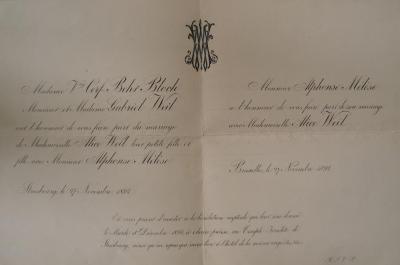 Madame Vve Cerf Behr Bloch
Monsieur et Madame Gabriel Weil
ont l'honneur de vous faire part du mariage
de Mademoiselle Alice Weil leur petite fille et
fille avec Monsieur Alphonse Mélèse
Strasbourg, le 27 Novembre
Monsieur Alphonse Mélèse
a l'honneur de vous faire part de son mariage
avec Mademoiselle Alice Weil
Bruxelles, le 27 Novembre
Et vous prient d'assister à la bénédiction nuptiale qui leur sera donnée
le Mardi Décembre à heures précises, au Temple Israélite de
Strasbourg, ainsi qu'au repas qui aura lieu à l'Hôtel de la
R.S.V.P.